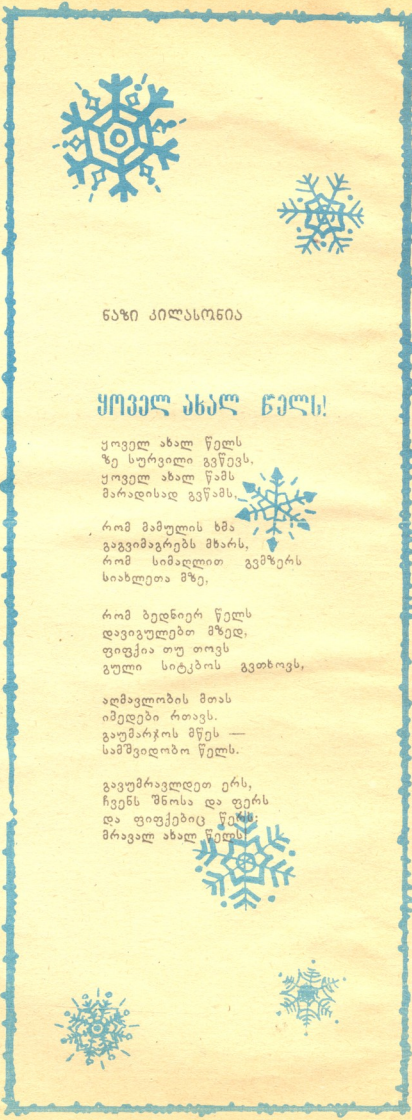 ნაზი კილასონია
ყოველ ახალ წელს!
ყოველ ახალ წელს
ზე სურვილი გვწევს,
ყოველ ახალ წამს
მარადისად გვწამს,
რომ მამულის ხმა
გაგვიმაგრებს მხარს,
რომ სიმაღლით გვმზერს
სიახლეთა მზე,
რომ ბედნიერ წელს
დავიგულებთ მზედ,
ფიფქია თუ თოვს
გული სიტკბოს გვთხოვს,
აღმავლობის მთას
იმედები რთავს.
გაუმარჯოს მწეს —
სამშვიდობო წელს.
გავუმრავლდეთ ერს,
ჩვენს შნოსა და ფერს
და ფიფქებიც წერს:
მრავალ ახალ წელს!